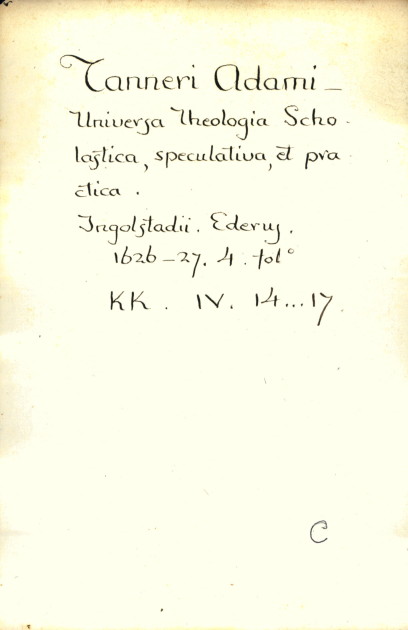 Tanneri Adami —
Universa Theologia Scho-
lastica, speculativa, et pra
ctica .
Ingolstadii . Ederus .
1626-27. 4. fol°
KK . IV. 14...17.
C